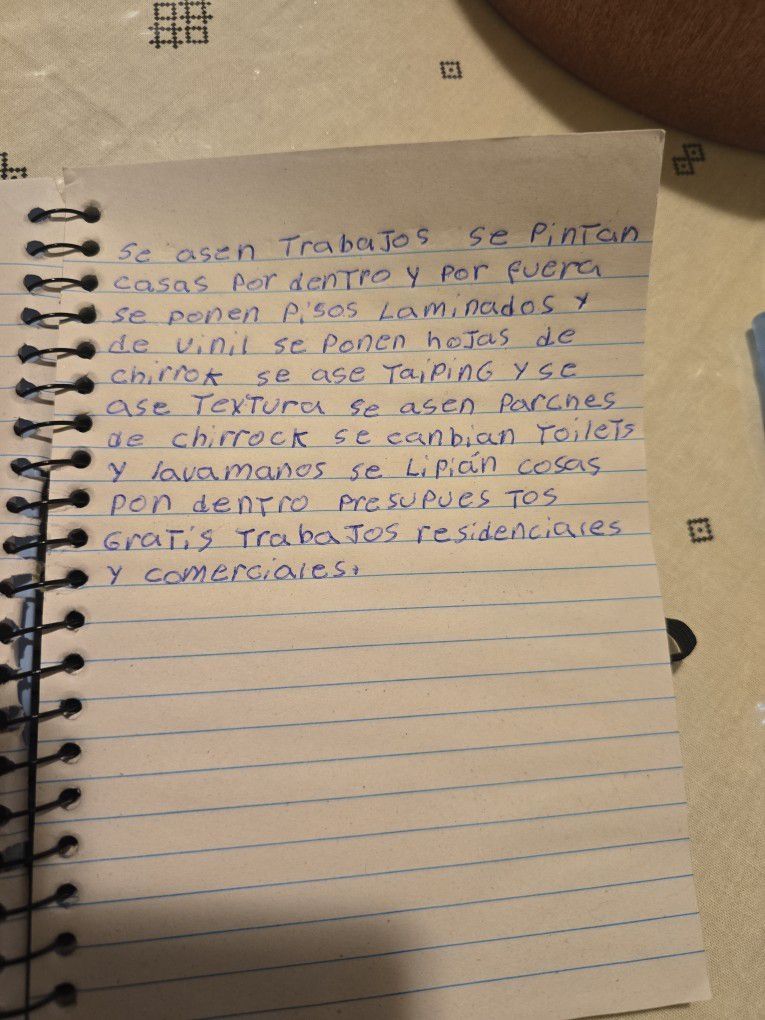 se asen TrabaJos se PinTan
casas Por denTro y por fuera
se ponen Pisos Laminados y
de vinil se Ponen hoJas de
chirrok se ase TaiPinG y se
ase TexTura se asen Parches
de chirrock se canbian ToileTs
y lavamanos se Lipián cosas
pon denTro PresuPuesTos
GraTis TrabaJos residenciales
y comerciales.